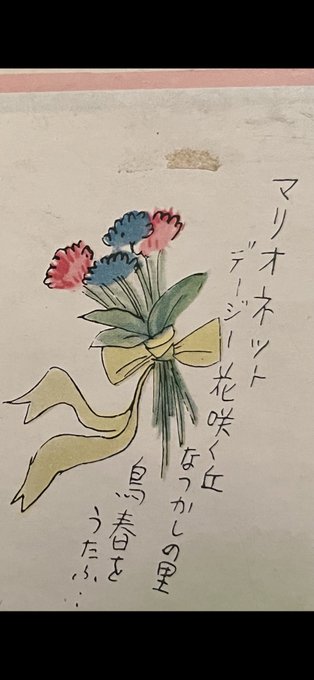 マリオネット
デージー花咲く丘
なつかしの里
鳥春を
うたふ…